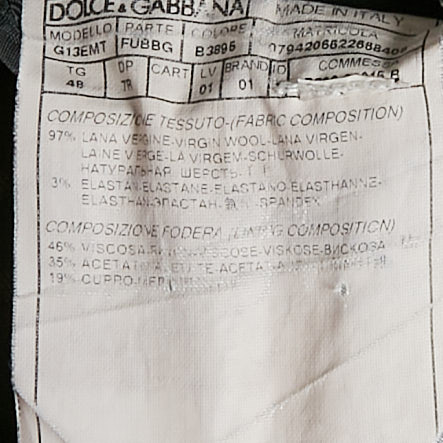 DOLCE & GABBANA MADE IN ITALY
MODELLO PARTE COLORE MATRICOLA
G13EMT FUBBG B3895
TG OP CART LV BRAND ID COMMESSA
48 TR 01 01
COMPOSIZIONE TESSUTO-(FABRIC COMPOSITION)
97% LANA VERGINE-VIRGIN WOOL-LANA VIRGEN-
LAINE VIERGE-LÃ VIRGEM-SCHURWOLLE-
НАТУРАЛЬНАЯ ШЕРСТЬ-
3% ELASTAN-ELASTANE-ELASTANO-ELASTHANNE-
ELASTHAN-ЭЛАСТАН- -SPANDEX
COMPOSIZIONE FODERA (LINING COMPOSITION)
46% VISCOSA- -VISKOSE-ВИСКОЗА
35% ACETATO-
19% CUPRO-